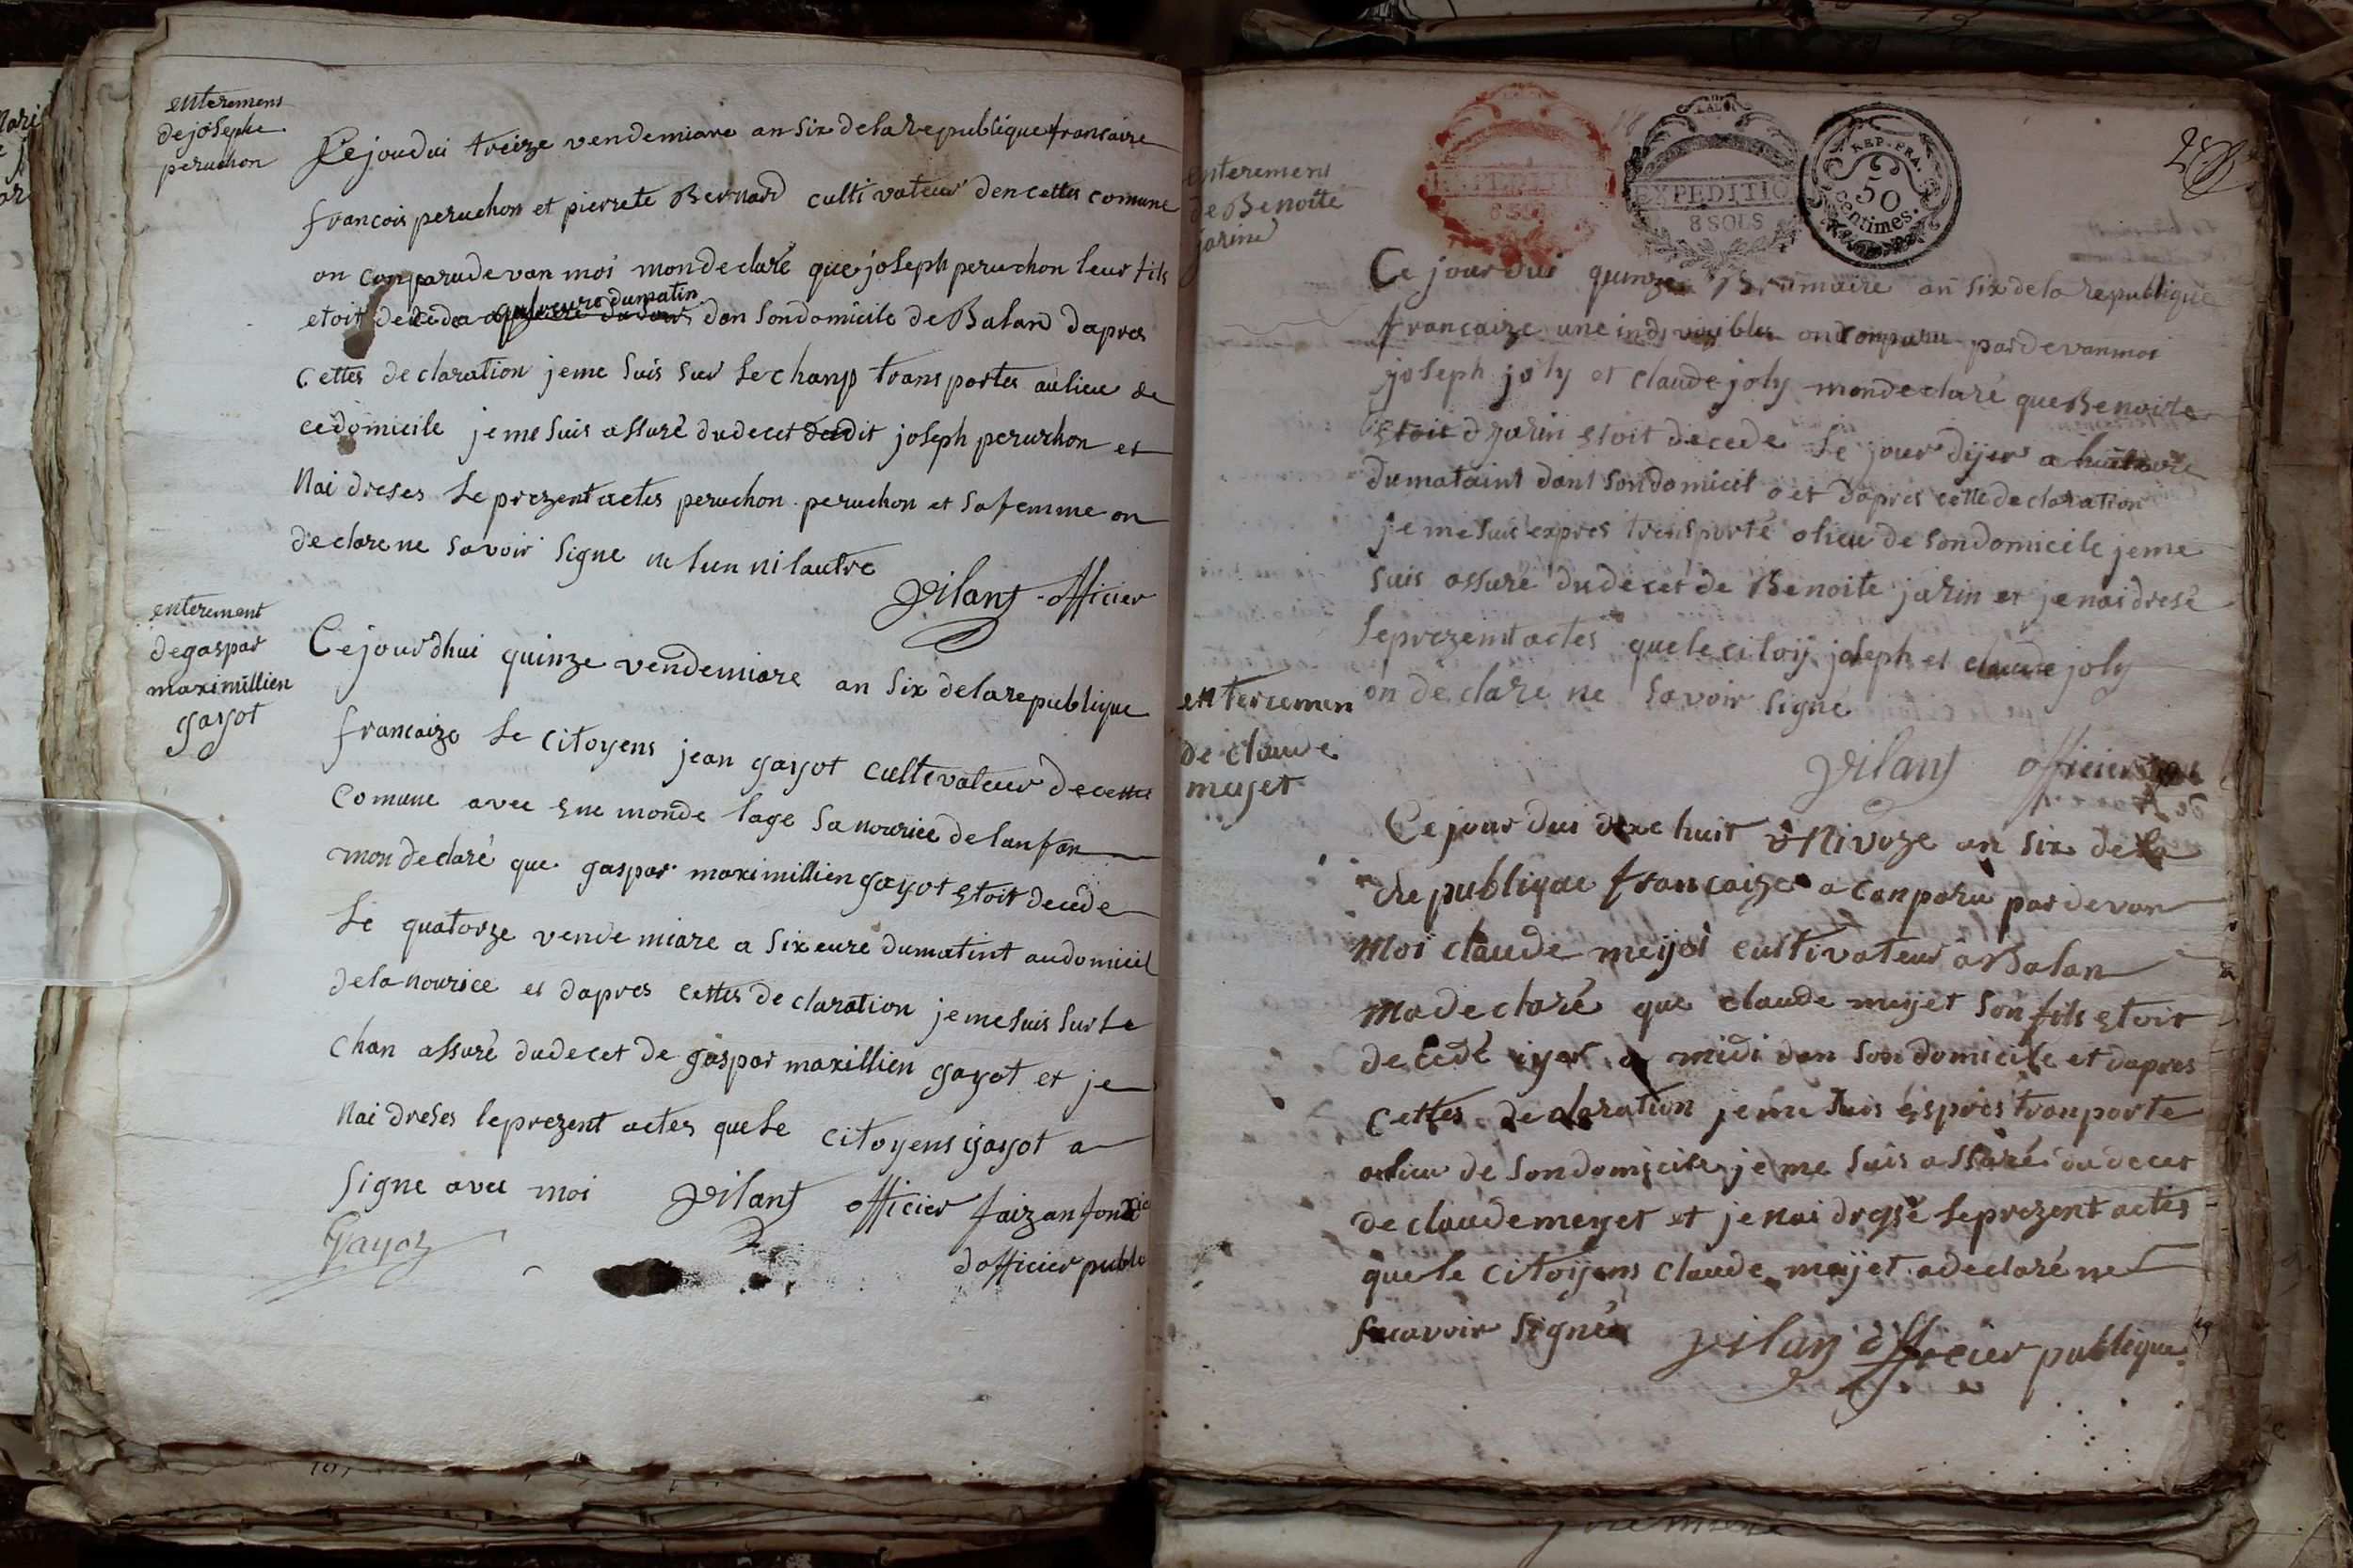 enteremens
de josephe
peruchon
Cejourdui treize vendemiare an six de la republique francaire
francois peruchon et pierrete Bernard cultivateur den cettes comune
on conparu de van moi mon declaré que joseph peruchon leur fils
etoit decede dumatin dan son domicile de Balan dapres
cettes declaration je me suis sur le chanp transportes au lieu de
ce domicile je me suis assuré du decet dudit joseph peruchon et
Nai dreses le prezent actes peruchon peruchon et sa femme on
declare ne savoir signe ne lun ni lautre
vilant officier
enterement
de gaspar
maximillien
gayot
Cejourdhui quinze vendemiare an six de la republique
francaize le citoyens jean gayot cultivateur de cettes
comune avec une monde lage sa nourice de lanfan
mon declaré que gaspar maximillien gayot etoit decede
Le quatorze vendemiare a six eure du matint au domicil
de la nourice et dapres cettes declaration je me suis sur le
chan assuré du decet de gaspar maxillien gayot et je
Nai dreses le prezent actes que le citoyens gayot a
signe avec moi vilant officier faizan
Gayot
dofficier publi
2
LA LOI
EXPEDITIO
8 SOLS
REP. FRA.
50
centimes.
enteremens
de Benoite
jarin
Ce jourdui quinze Brumaire an six de la republique
francaize une indivisibles on comparu pardevan moi
joseph joly et claude joly mon declaré que Benoite
etoit djarin etoit decede le jour dyer a huit
du mataint dans son domicil et dapres cette declaration
je me suis expres transporté o lieu de son domicile je me
suis assuré du decet de Benoite jarin et je nai dresé
le prezent actes que le citoy joseph et claude joly
on declare ne savoir signé
vilant officier
enteremen
de claude
meyet
Cejourdui dixe huit Nivoze an six de la
republique francaize a conparu pardevan
Moi claude meyet cultivateur a Balan
ma declaré que claude meyet son fils etoit
decedé iyer a midi dan son domicile et dapres
cettes declaration je me suis espres tranporte
au lieu de son domicile je me suis assuré du decet
de claude meyet et je nai dresse le prezent actes
que le citoyens claude meyet a declaré ne
scavoir signé vilan officier publique